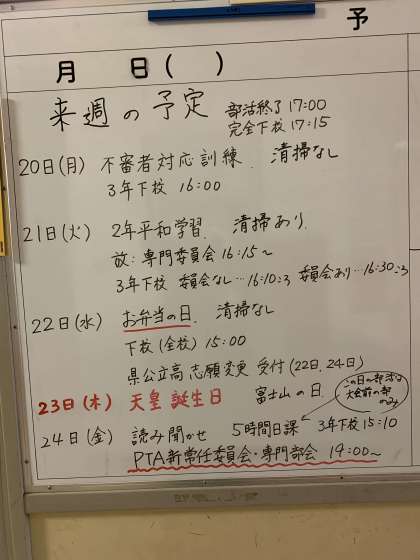 予
月 日( )
来週の予定 部活終了 17:00
完全下校 17:15
20日(月) 不審者対応訓練. 清掃なし
3年下校 16:00
21日(火) 2年平和学習. 清掃あり.
放:専門委員会 16:15~
3年下校 委員会なし…16:10ころ 委員会あり…16:30ころ
22日(水) お弁当の日. 清掃なし
下校(全校) 15:00
県公立高 志願変更 受付(22日,24日)
23日(木) 天皇誕生日 富士山の日.
この日の部活は
大会前の部
のみ
24日(金) 読み聞かせ 5時間日課 3年下校15:10
PTA新常任委員会・専門部会 14:00~